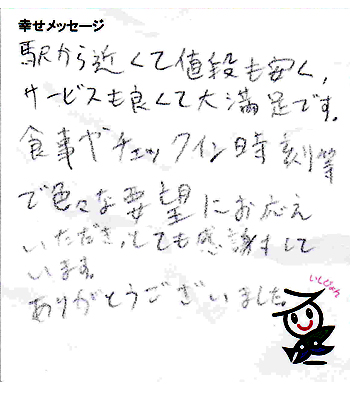 幸せメッセージ
駅から近くて値段も安く、
サービスも良くて大満足です。
食事やチェックイン時刻等
で色々な要望にお応え
いただき、とても感謝して
います。
ありがとうございました
いしじょん